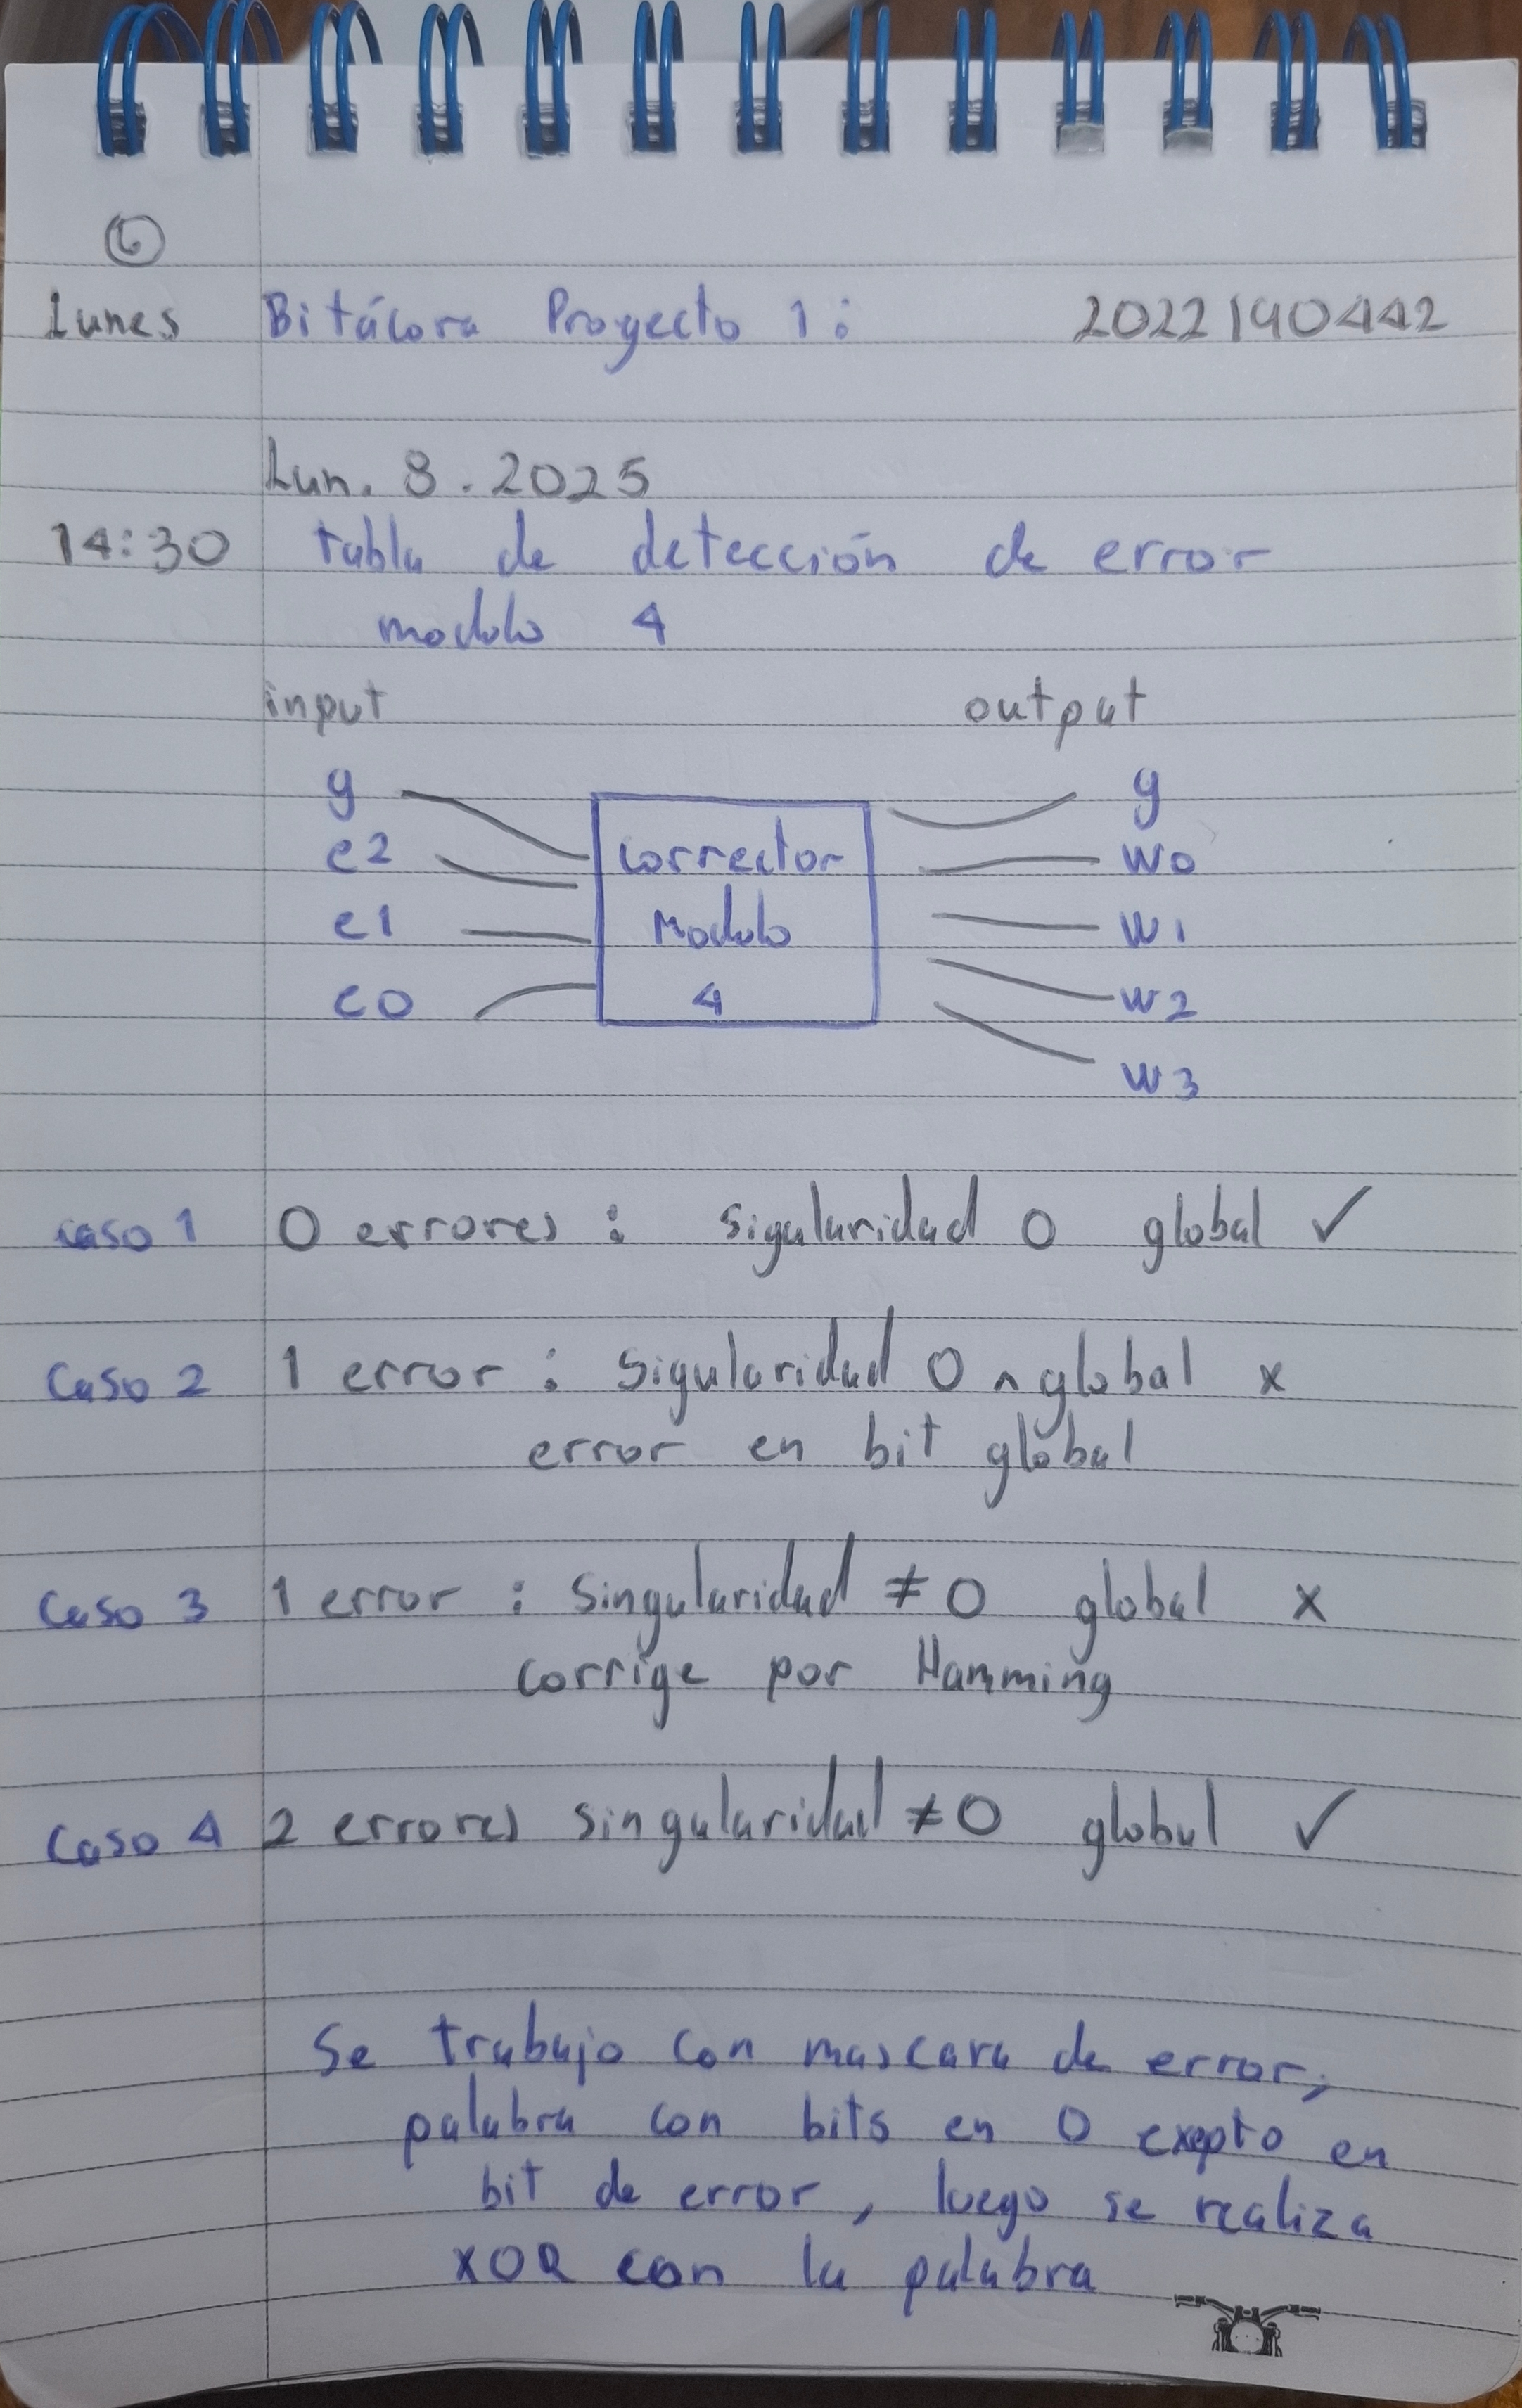 6
Lunes Bitácora Proyecto 1: 2022140442
Lun. 8. 2025
14:30 tabla de detección de error
modulo 4
input output
g g
e2 corrector w0
e1 Modulo w1
e0 4 w2
w3
caso 1 0 errores : sigularidad 0 global ✓
Caso 2 1 error : sigularidad 0 ∧ global x
error en bit global
Caso 3 1 error : singularidad ≠ 0 global x
corrige por Hamming
Caso 4 2 errores singularidad ≠ 0 global ✓
Se trabajo con mascara de error,
palabra con bits en 0 exepto en
bit de error, luego se realiza
XOR con la palabra